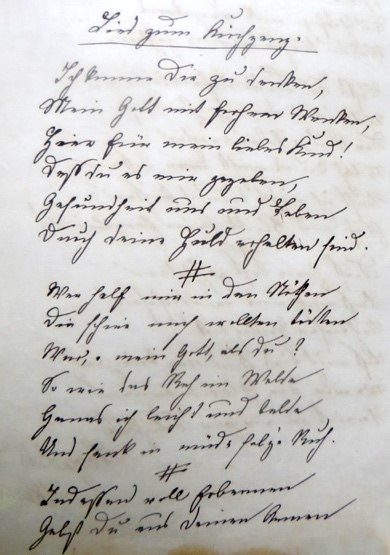 Lied zum Kirchgang.
Ich komme Dir zu danken,
Mein Gott mit frohem Wanken,
Hier für mein liebes Kind!
Daß du es mir gegeben,
Gesundheit uns und Leben
Durch deine Huld erhalten sind.
#
Wer half mir in den Nöthen
Die schier mich wollten tödten
Wer, o mein Gott, als du?
So wie das Reh im Walde
Genas ich leicht und balde
Und sank in müde Ruh.
#
Indessen voll Erbarmen
Gabst Du uns Deinen Armen